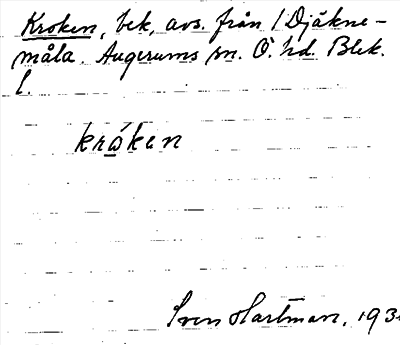 Kroken, bek, avs. från 1 Djäkne-
måla. Augerums sn. Ö. hd. Blek.
l.
kråken
Sven Hartman, 193